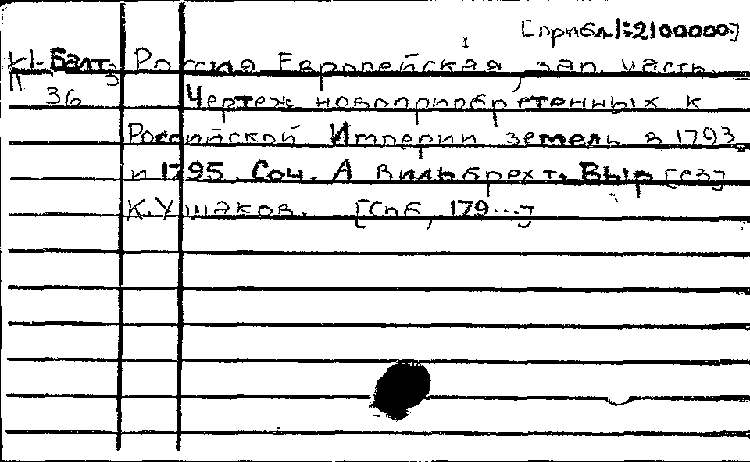 [прибл.1:2100000]
К1-Балт. Россия Европейская, зап. часть.
36 Чертеж новоприобретенных к
Российской Империи земель в 1793
и 1795. Соч. А Вильбрехт. Выр [ез]
К.Ушаков. [Спб, 179...]